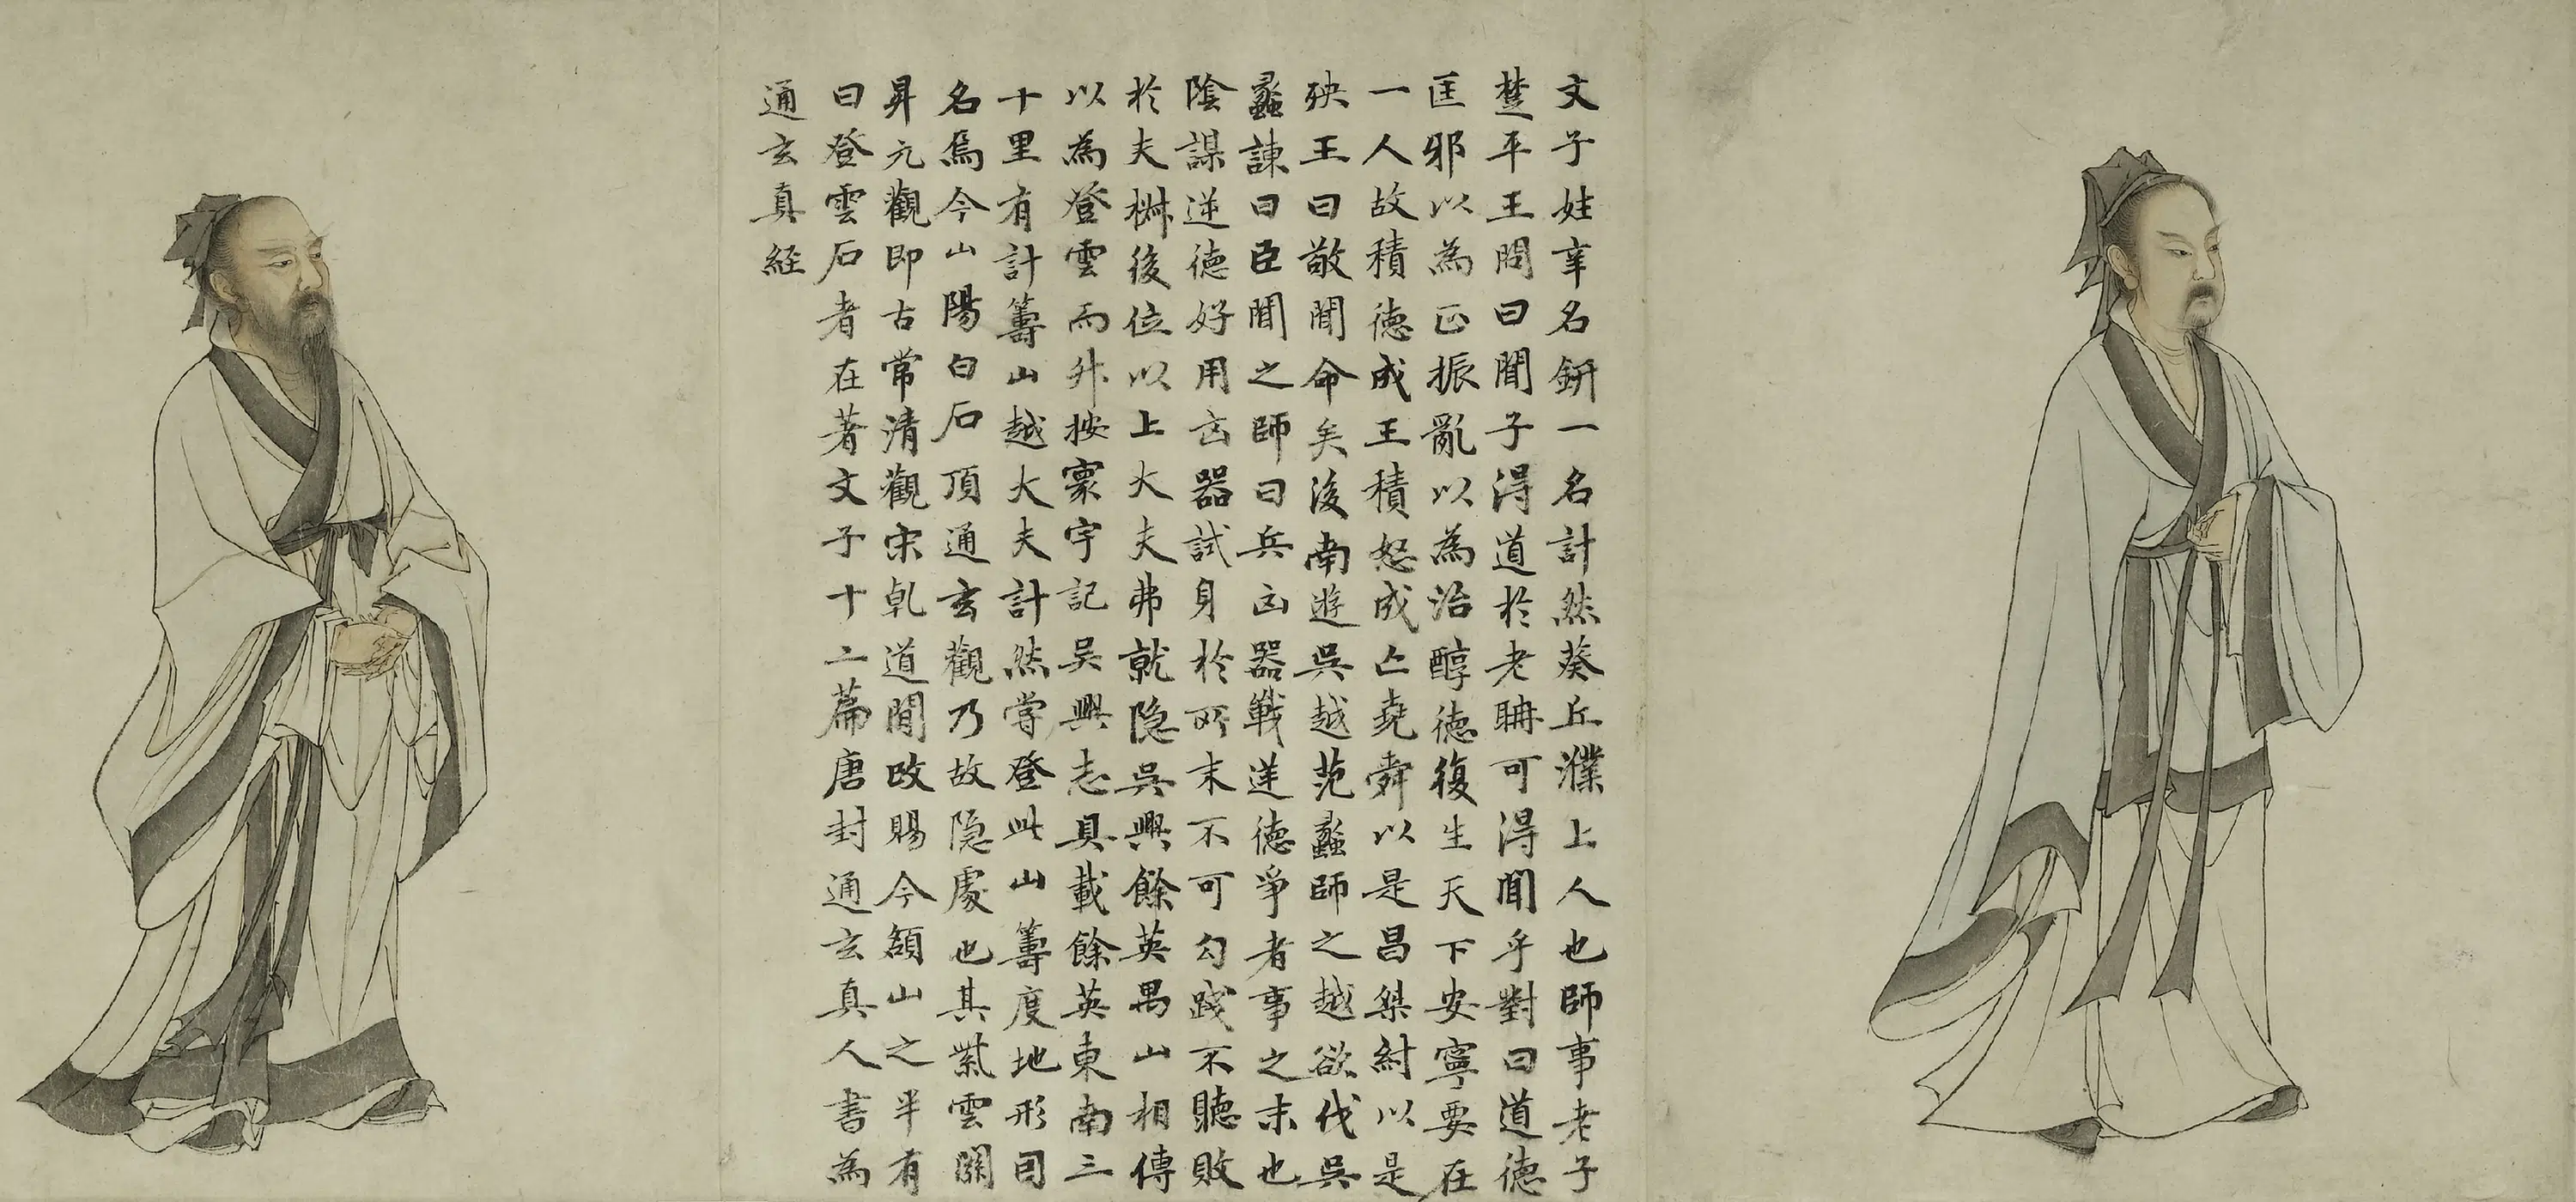 文子姓辛名鈃一名計然葵丘濮上人也師事老子
楚平王問曰聞子得道於老聃可得聞乎對曰道德
匡邪以為正振亂以為治醇德復生天下安寧要在
一人故積德成王積怒成亡堯舜以是昌桀紂以是
殃王曰敬聞命矣後南遊吳越范蠡師之越欲伐吳
蠡諫曰臣聞之師曰兵凶器戰逆德爭者事之末也
陰謀逆德好用凶器試身於所末不可勾踐不聽敗
於夫椒後位以上大夫弗就隱吳興餘英禺山相傳
以為登雲而升按寰宇記吳興志具載餘英東南三
十里有計籌山越大夫計然嘗登此山籌度地形因
名焉今山陽白石頂通玄觀乃故隱處也其紫雲關
昇元觀即古常清觀宋乹道間改賜今額山之半有
曰登雲石者在著文子十二篇唐封通玄真人書為
通玄真經